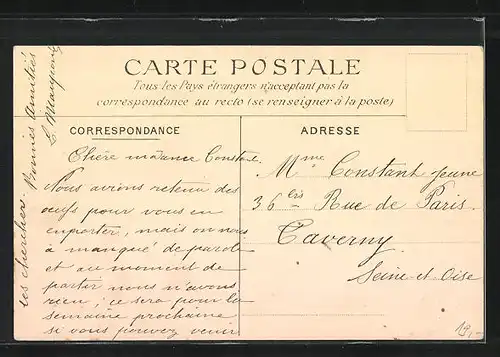 CARTE POSTALE
Tous les Pays étrangers n'acceptant pas la
correspondance au recto (se renseigner à la poste)
CORRESPONDANCE
ADRESSE
Chère madame Constant
Nous avions retenu des
oeufs pour vous en
emporter, mais on nous
a manqué de parole
et au moment de
partir nous n'avons
rien; ce sera pour la
semaine prochaine
si vous pouvez venir
les chercher. Bonnes amitiés
Mme Constant jeune
36 bis Rue de Paris.
Taverny.
Seine-et-Oise
19,-